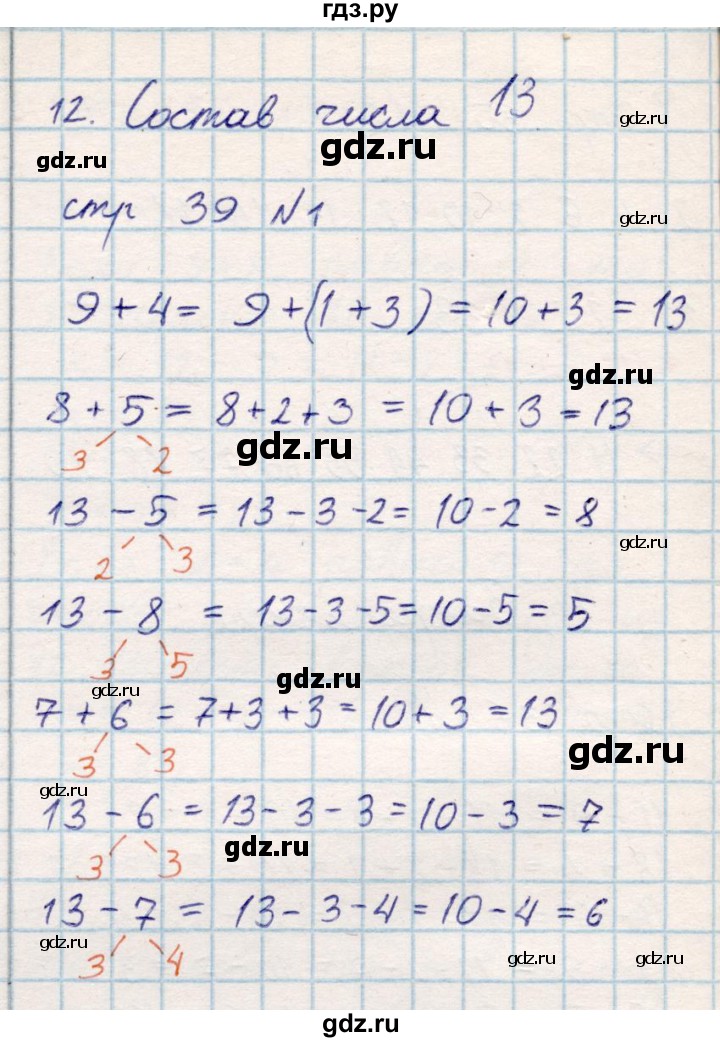 гдз.ру
12. Состав числа 13
gdz.ru
gdz.ru
gdz.ru
стр 39 №1
gdz.ru
9 + 4 = 9 + (1 + 3) = 10 + 3 = 13
gdz.ru
8 + 5 = 8 + 2 + 3 = 10 + 3 = 13
3 2
gdz.ru
13 - 5 = 13 - 3 - 2 = 10 - 2 = 8
gdz.ru
2 3
13 - 8 = 13 - 3 - 5 = 10 - 5 = 5
3 5
gdz.ru
gdz.ru
7 + 6 = 7 + 3 + 3 = 10 + 3 = 13
gdz.ru
3 3
gdz.ru
13 - 6 = 13 - 3 - 3 = 10 - 3 = 7
gdz.ru
3 3
13 - 7 = 13 - 3 - 4 = 10 - 4 = 6
gdz.ru
3 4
gdz.ru
gdz.ru
gdz.ru